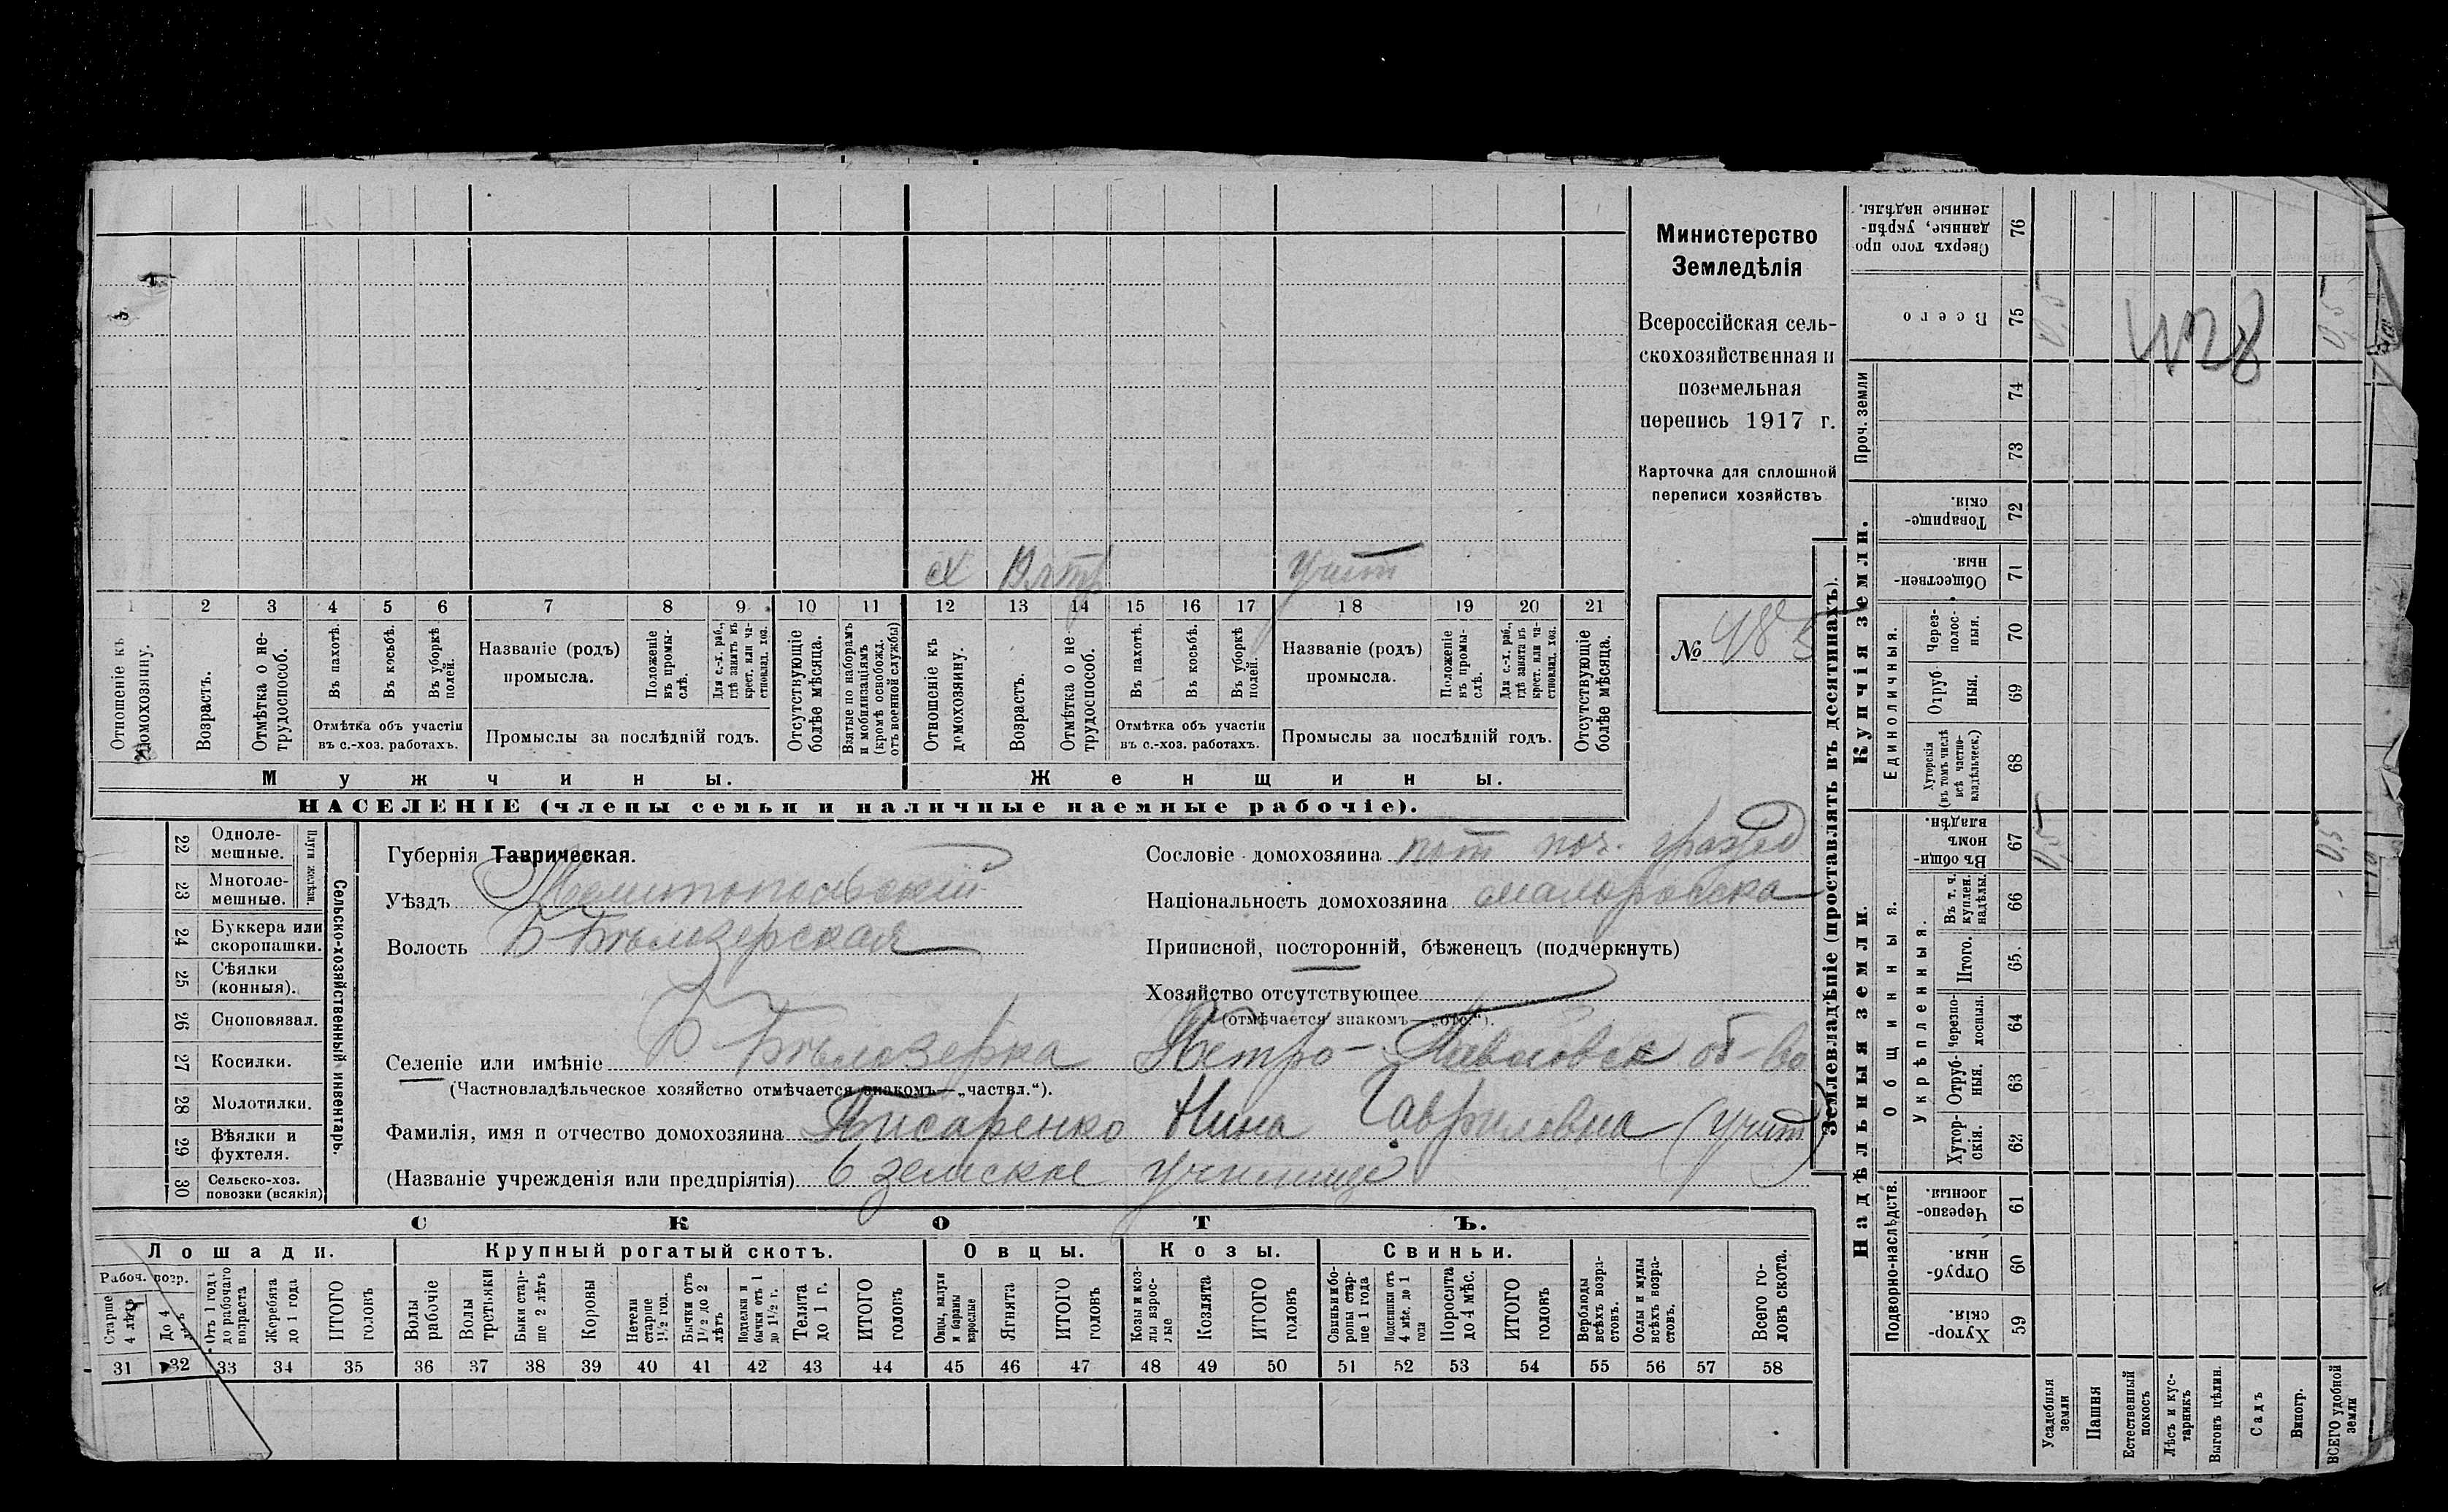 х
учит
1 2 3 4 5 6 7 8 9 10 11 12 13 14 15 16 17 18 19 20 21
Отношеніе къ домохозяину.
Возрастъ.
Отмѣтка о не-
трудоспособ.
Въ пахотѣ.
Въ косьбѣ.
Въ уборкѣ полей.
Отмѣтка объ участіи
въ с.-хоз. работахъ.
Названіе (родъ)
промысла.
Положеніе въ промы-
слѣ.
Для с.-х. раб., гдѣ занятъ въ крест. или ча-
стновлад. хоз.
Промыслы за послѣдній годъ.
Отсутствующіе болѣе мѣсяца.
Взятые по наборамъ и мобилизаціямъ (кромѣ освобожд. отъ военной службы)
Отношеніе къ домохозяину.
Возрастъ.
Отмѣтка о не-
трудоспособ.
Въ пахотѣ.
Въ косьбѣ.
Въ уборкѣ полей.
Отмѣтка объ участіи
въ с.-хоз. работахъ.
Названіе (родъ)
промысла.
Положеніе въ промы-
слѣ.
Для с.-х. раб., гдѣ занята въ крест. или ча-
стновлад. хоз.
Промыслы за послѣдній годъ.
Отсутствующіе болѣе мѣсяца.
Мужчины.
Женщины.
НАСЕЛЕНІЕ (члены семьи и наличные наемные рабочіе).
Министерство
Земледѣлія
Всероссійская сель-
скохозяйственная и
поземельная
перепись 1917 г.
Карточка для сплошной
переписи хозяйствъ
№ 483
22 Одноле-
мешные.
23 Многоле-
мешные.
Плуги желѣзн.
24 Буккера или
скоропашки.
25 Сѣялки
(конныя).
26 Сноповязал.
27 Косилки.
28 Молотилки.
29 Вѣялки и
фухтеля.
30 Сельско-хоз.
повозки (всякія)
Сельско-хозяйственный инвентарь.
Губернія Таврическая.
Уѣздъ Мелитопольскій
Волость Б-Бѣлозерская
Сословіе домохозяина пот поч. гражд
Національность домохозяина малоросска
Приписной, посторонній, бѣженецъ (подчеркнуть)
Хозяйство отсутствующее
(отмѣчается знакомъ—„отс.“).
Селеніе или имѣніе Б-Бѣлозерка Петро-Павловск об-во
(Частновладѣльческое хозяйство отмѣчается знакомъ—„частвл.“).
Фамилія, имя и отчество домохозяина Писаренко Нина Гавриловна (учит)
(Названіе учрежденія или предпріятія) 6 земское училище
СКОТЪ.
Лошади.
Рабоч. возр.
Старше 4 лѣтъ
До 4 лѣтъ
Отъ 1 года до рабочаго возраста
Жеребята до 1 года
ИТОГО головъ
Крупный рогатый скотъ.
Волы рабочіе
Волы третьяки
Быки стар-
ше 2 лѣтъ
Коровы
Нетели старше 1½ год.
Бычки отъ 1½ до 2 лѣтъ
Подтелки и бычки отъ 1 до 1½ г.
Телята до 1 г.
ИТОГО головъ
Овцы.
Овцы, валухи и бараны взрослые
Ягнята
ИТОГО головъ
Козы.
Козы и коз-
лы взрос-
лые
Козлята
ИТОГО головъ
Свиньи.
Свиньи и бо-
ровы стар-
ше 1 года
Подсвинки отъ 4 мѣс. до 1 года
Поросята до 4 мѣс.
ИТОГО головъ
Верблюды всѣхъ возра-
стовъ.
Ослы и мулы всѣхъ возра-
стовъ.
Всего го-
ловъ скота.
31 32 33 34 35 36 37 38 39 40 41 42 43 44 45 46 47 48 49 50 51 52 53 54 55 56 57 58
Землевладѣніе (проставлять въ десятинахъ).
Надѣльныя земли.
Купчія земли.
Проч. земли
Сверхъ того про-
данные, укрѣп-
ленные надѣлы. 76
Всего 75 0,5 0,5
428
74
73
Товарище-
скія. 72
Обществен-
ныя. 71
Единоличныя.
Через-
полос-
ныя. 70
Отруб-
ныя. 69
Хуторскія (въ томъ числѣ всѣ частно-
владѣльческ.) 68
Общинныя.
Въ общи-
номъ владѣн. 67 0,5 0,5
Укрѣпленныя.
Въ т. ч. куплен. надѣлы. 66
Итого. 65.
Черезпо-
лосныя. 64
Отруб-
ныя. 63
Хутор-
скія. 62
Подворно-наслѣдств.
Черезпо-
лосныя. 61
Отруб-
ныя. 60
Хутор-
скія. 59
Усадебныя земли
Пашня
Естественный покосъ
Лѣсъ и кус-
тарникъ
Выгонъ цѣлин.
Садъ
Виногр.
ВСЕГО удобной земли